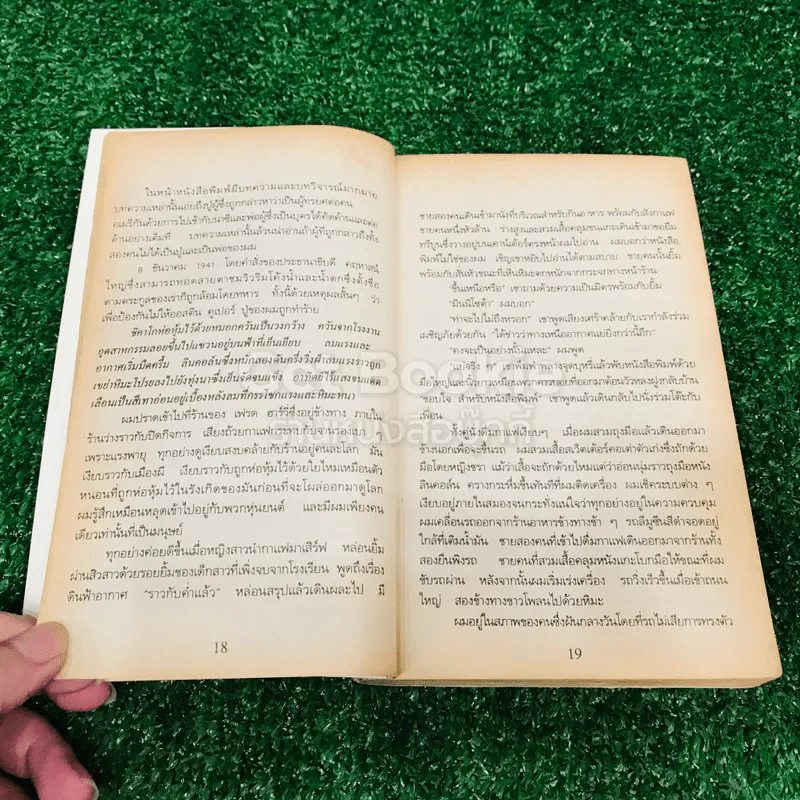 ในหน้าหนังสือพิมพ์มีบทความและบทวิจารณ์มากมาย
บทความเหล่านั้นเอ่ยถึงปู่ผู้ซึ่งถูกกล่าวหาว่าเป็นผู้ทรยศต่อคน
อเมริกันด้วยการไปเข้ากับนาซีและพ่อผู้ซึ่งเป็นบุตรได้คัดค้านและต่อ
ต้านอย่างเต็มที่ บทความเหล่านั้นล้วนน่าอ่านถ้าผู้ที่ถูกกล่าวถึงทั้ง
สองคนไม่ได้เป็นปู่และเป็นพ่อของผม
8 ธันวาคม 1941 โดยคำสั่งของประธานาธิบดี คฤหาสน์
ใหญ่ซึ่งสามารถทอดสายตาชมวิวริมโค้งน้ำและน้ำตกซึ่งตั้งชื่อ
ตามตระกูลของเราก็ถูกล้อมโดยทหาร ทั้งนี้ด้วยเหตุผลสั้นๆ ว่า
เพื่อป้องกันไม่ให้ออสติน คูเปอร์ ปู่ของผมถูกทำร้าย
ชิคาโกห่อหุ้มไว้ด้วยหมอกควันเป็นวงกว้าง ควันจากโรงงาน
อุตสาหกรรมลอยขึ้นไปแขวนอยู่บนฟ้าที่เย็นเยียบ ลมแรงและ
อากาศเริ่มมืดครึ้ม ลินคอล์นซึ่งหนักสองตันครึ่งวิ่งฝ่าลมแรงราวถูก
เขย่าหิมะโปรยลงไปยังทุ่งนาซึ่งเย็นจัดจนแข็ง อาทิตย์ไร้แสงจนแค่
เลือนเป็นสีเทาอ่อนอยู่เบื้องหลังลมที่กรรโชกแรงและหิมะหนา
ผมปราดเข้าไปที่ร้านของ เฟรด ฮาร์วีซึ่งอยู่ข้างทาง ภายใน
ร้านว่างราวกับปิดกิจการ เสียงถ้วยกาแฟกระทบกับจานรองเบา
เพราะแรงพายุ ทุกอย่างดูเงียบสงบคล้ายกับร้านอยู่คนละโลก มัน
เงียบราวกับเมืองผี เงียบราวกับถูกห่อหุ้มไว้ด้วยใยไหมเหมือนตัว
หนอนที่ถูกห่อหุ้มไว้ในรังเกิดของมันก่อนที่จะโผล่ออกมาดูโลก
ผมรู้สึกเหมือนหลุดเข้าไปอยู่กับพวกหุ่นยนต์ และมีผมเพียงคน
เดียวเท่านั้นที่เป็นมนุษย์
ทุกอย่างค่อยดีขึ้นเมื่อหญิงสาวนำกาแฟมาเสิร์ฟ หล่อนยิ้ม
ผ่านสิวสาวด้วยรอยยิ้มของเด็กสาวที่เพิ่งจบจากโรงเรียน พูดถึงเรื่อง
ดินฟ้าอากาศ "ราวกับค่ำแล้ว" หล่อนสรุปแล้วเดินผละไป มี
18
ชายสองคนเดินเข้ามานั่งที่บริเวณสำหรับกินอาหาร พร้อมกับสั่งกาแฟ
ชายคนหนึ่งหัวล้าน ร่างสูงและสวมเสื้อคลุมขนแกะเดินเข้ามาขอยืม
ทรีบูนซึ่งวางอยู่บนเคาน์เตอร์ตรงหน้าผมไปอ่าน ผมบอกว่าหนังสือ
พิมพ์ไม่ใช่ของผม เชิญเขาหยิบไปอ่านได้ตามสบาย ชายคนนั้นยิ้ม
พร้อมกับสั่นหัวขณะที่เห็นหิมะตกหนักจากกระจกทางหน้าร้าน
"ขึ้นเหนือหรือ" เขาถามด้วยความเป็นมิตรพร้อมกับยิ้ม
"มินนิโซต้า" ผมบอก
"ท่าจะไปไม่ถึงหรอก" เขาพูดเสียงเศร้าคล้ายกับเรากำลังร่วม
เผชิญภัยด้วยกัน "ได้ข่าวว่าทางเหนืออากาศแย่ยิ่งกว่านี้อีก"
"คงจะเป็นอย่างนั้นแหละ" ผมพูด
"แย่จริง ๆ" เขาพึมพำพลางจุดบุหรี่แล้วพับหนังสือพิมพ์ด้วย
มือใหญ่และนิ้วยาวเหมือนพวกควายอยที่ออกมาต้อนวัวหลงฝูงกลับบ้าน
"ขอบใจ สำหรับหนังสือพิมพ์" เขาพูดแล้วเดินกลับไปนั่งร่วมโต๊ะกับ
เพื่อน
ทั้งคู่นั่งดื่มกาแฟเงียบๆ เมื่อผมสวมถุงมือแล้วเดินออกมา
ข้างนอกเพื่อจะขึ้นรถ ผมสวมเสื้อสเว็ตเตอร์คอเต่าตัวเก่งซึ่งถักด้วย
มือโดยหญิงชรา แม้ว่าเสื้อจะถักด้วยไหมแต่ว่าอ่อนนุ่มราวถุงมือหนัง
ลินคอล์น ครางกระหึ่มขึ้นทันทีที่ผมติดเครื่อง ผมเช็คระบบต่าง ๆ
เงียบอยู่ภายในสมองจนกระทั่งแน่ใจว่าทุกอย่างอยู่ในความควบคุม
ผมเคลื่อนรถออกจากร้านอาหารข้างทางช้า ๆ รถลีมูซีนสีดำจอดอยู่
ใกล้ที่เติมน้ำมัน ชายสองคนที่เข้าไปดื่มกาแฟเดินออกมาจากร้านทั้ง
สองยืนพิงรถ ชายคนที่สวมเสื้อคลุมหนังแกะโบกมือให้ขณะที่ผม
ขับรถผ่าน หลังจากนั้นผมเริ่มเร่งเครื่อง รถวิ่งเร็วขึ้นเมื่อเข้าถนน
ใหญ่ สองข้างทางขาวโพลนไปด้วยหิมะ
ผมอยู่ในสภาพของคนซึ่งฝันกลางวันโดยที่รถไม่เสียการทรงตัว
19